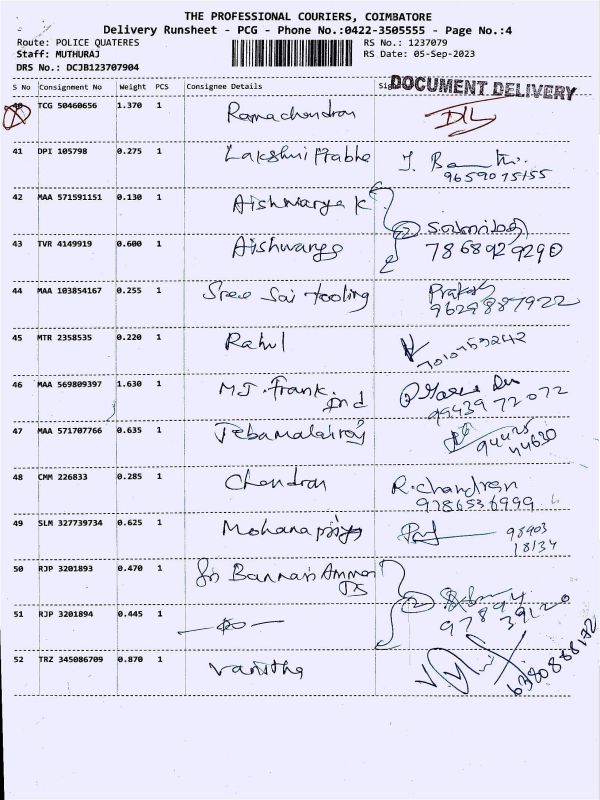 THE PROFESSIONAL COURIERS, COIMBATORE
Delivery Runsheet - PCG - Phone No.:0422-3505555 - Page No.:4
Route: POLICE QUATERES RS No.: 1237079
Staff: MUTHURAJ RS Date: 05-Sep-2023
DRS No.: DCJB123707904
S No Consignment No Weight PCS Consignee Details DOCUMENT DELIVERY
40 TCG 50460656 1.370 1 Ramachandran
41 DPI 105798 0.275 1 Lakshmi Prabha
9659075155
42 MAA 571591151 0.130 1 Aishwarya K
43 TVR 4149919 0.600 1 2
7868929290
44 MAA 103854167 0.255 1 Sree Sai tooling Prakash
9629887922
45 MTR 2358535 0.220 1 Rahul
46 MAA 569809397 1.630 1 M.J. Frank
Ind 99439 72072
47 MAA 571707766 0.635 1
94425
44630
48 CMM 226833 0.285 1 Chandran R.chandran
9786536999
49 SLM 327739734 0.625 1 Mohanapriya
98403
18134
50 RJP 3201893 0.470 1 Sri Bannari Amman
2
51 RJP 3201894 0.445 1 - do - 97894 39120
52 TRZ 345086709 0.870 1 Vanitha